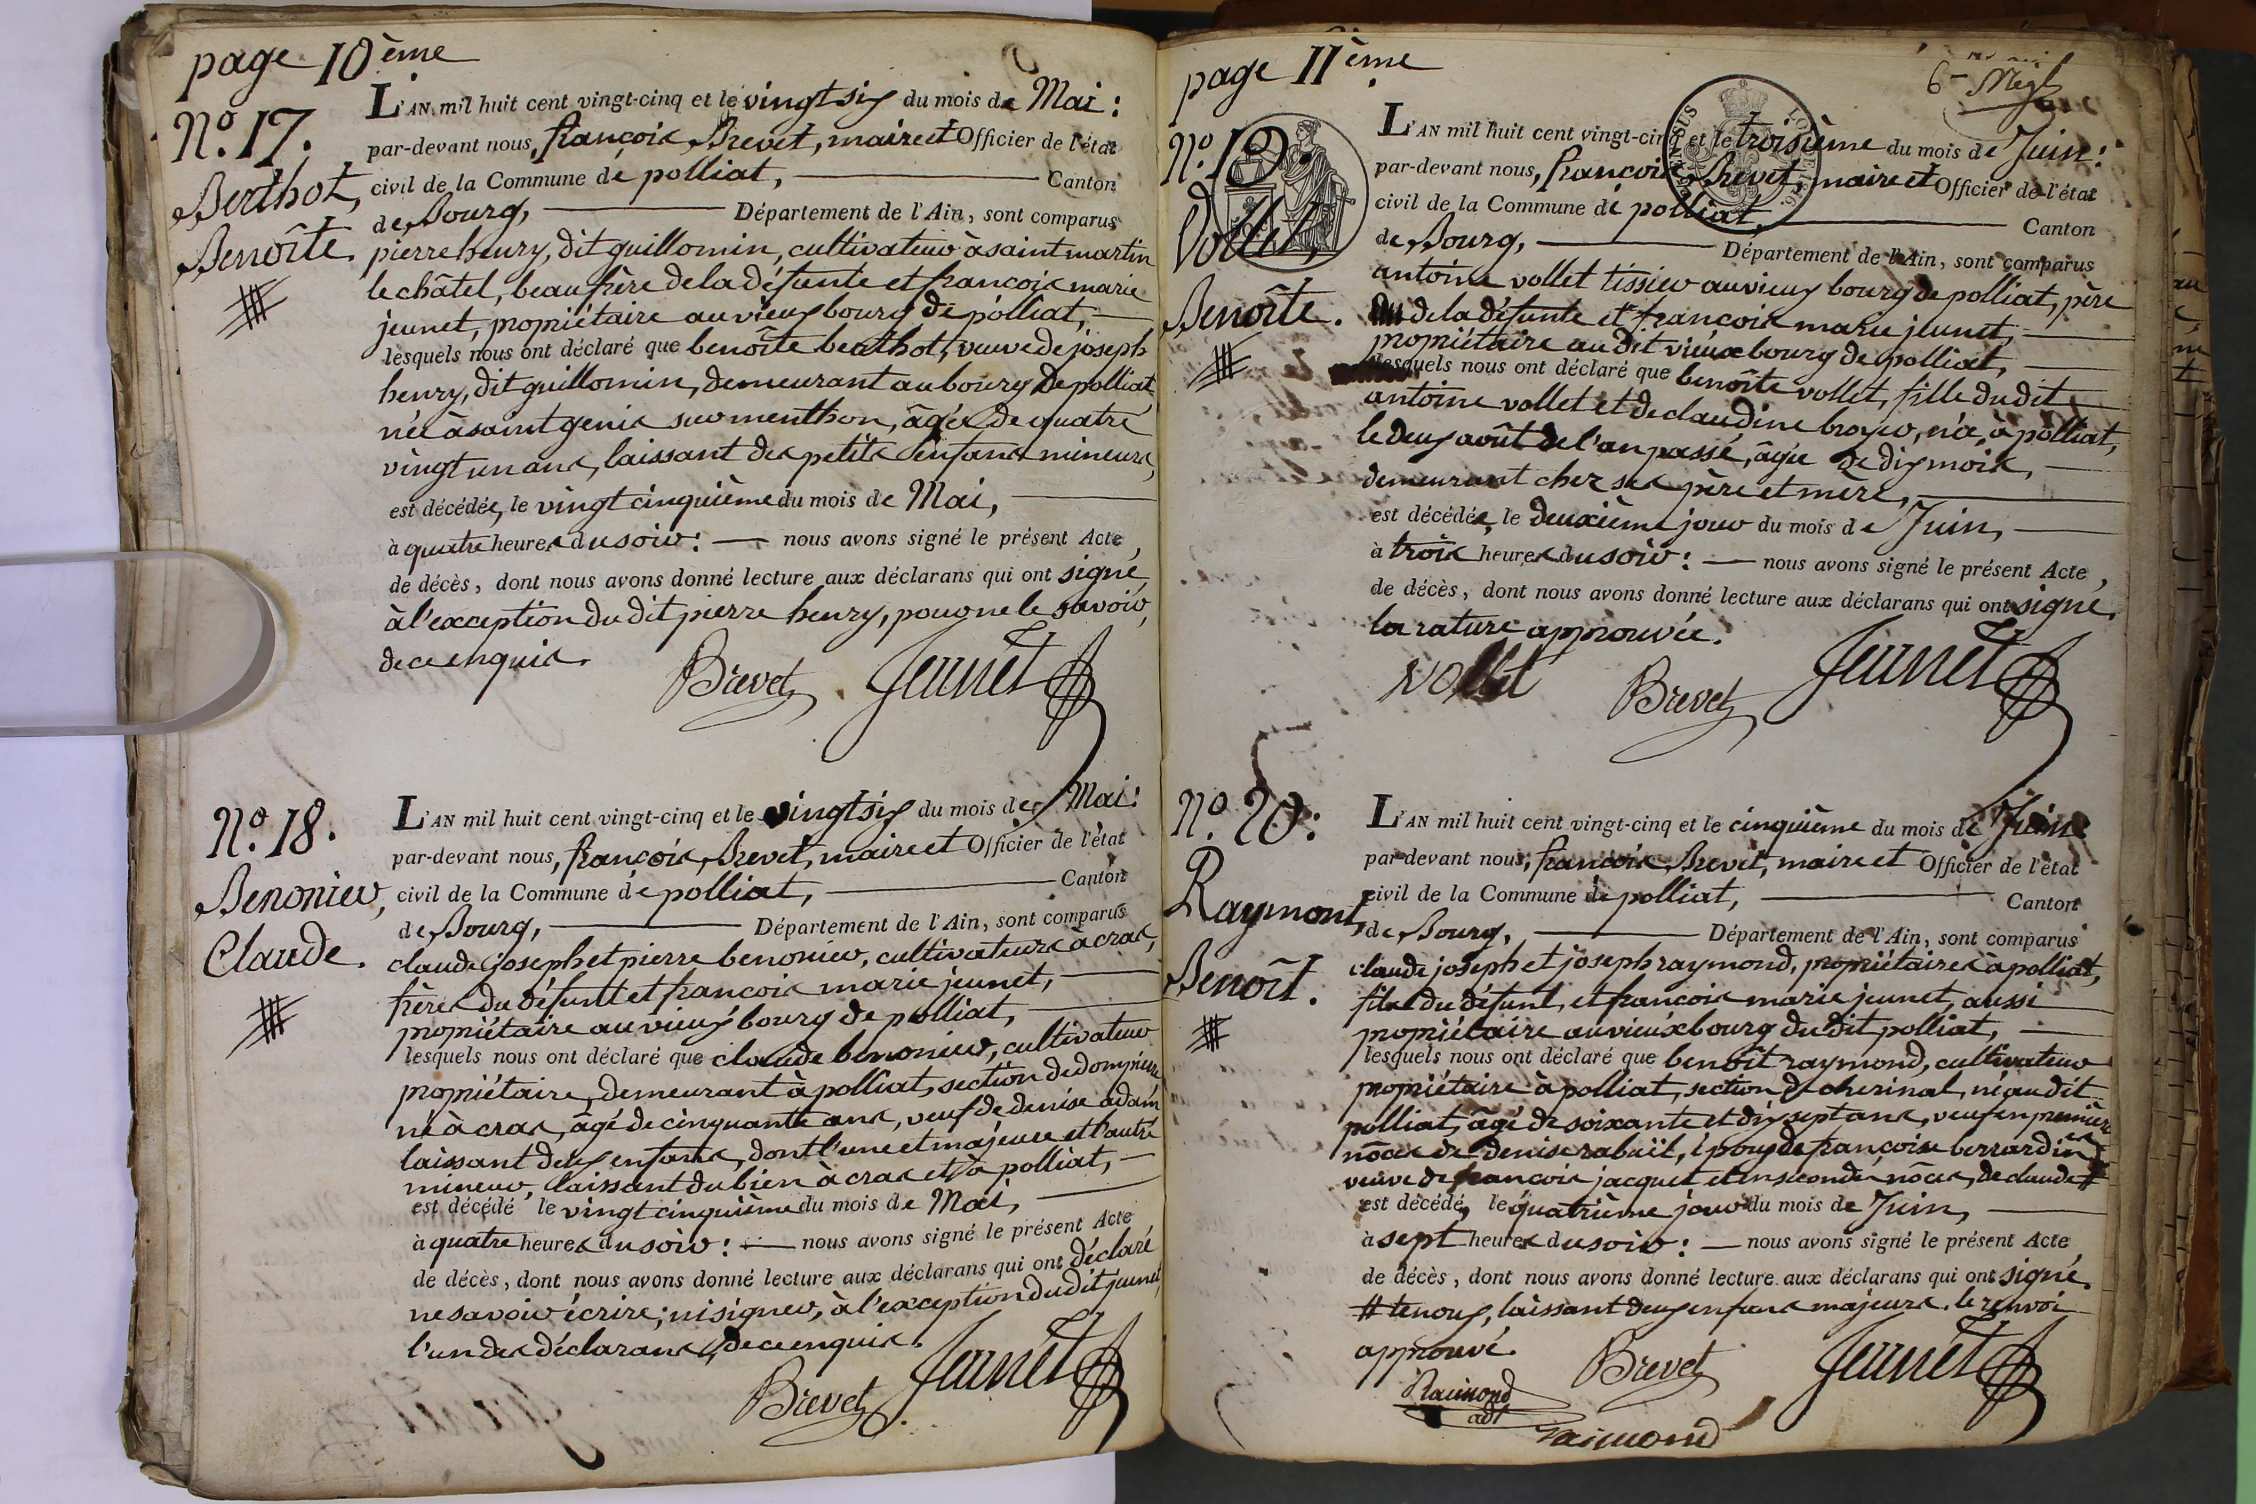 page 10ème
N.º 17.
Berthot,
Benoîte.
L'AN mil huit cent vingt-cinq et le vingt six du mois de Mai :
par-devant nous, françois Brevet, maire et Officier de l'état
civil de la Commune de polliat, Canton
de Bourg, Département de l'Ain, sont comparus
pierre henry, dit guillomin, cultivateur à saint martin
le châtel, beau frère de la défunte et françois marie
jeunet, propriétaire au vieux bourg de polliat,
lesquels nous ont déclaré que benoîte berthot, veuve de joseph
henry, dit guillomin, demeurant au bourg de polliat
née à saint genis sur menthon, âgée de quatre
vingt un ans, laissant des petits enfans mineurs,
est décédée, le vingt cinquième du mois de Mai,
à quatre heures du soir : nous avons signé le présent Acte,
de décès, dont nous avons donné lecture aux déclarans qui ont signé,
à l'exception du dit pierre henry, pour ne le savoir,
de ce enquis.
Brevet Jeunet
N.º 18.
Benonier,
Claude.
L'AN mil huit cent vingt-cinq et le vingt six du mois de Mai :
par-devant nous, françois Brevet, maire et Officier de l'état
civil de la Commune de polliat, Canton
de Bourg, Département de l'Ain, sont comparus
claude joseph et pierre benonier, cultivateurs à cras,
frères du défunt et françois marie jeunet,
propriétaire au vieux bourg de polliat,
lesquels nous ont déclaré que claude benonier, cultivateur
propriétaire, demeurant à polliat, section de dompierre
né à cras, âgé de cinquante ans, veuf de denise adam
laissant deux enfans, dont l'une et majeure et l'autre
mineur, laissant du bien à cras et à polliat,
est décédé le vingt cinquième du mois de Mai,
à quatre heures du soir : nous avons signé le présent Acte
de décès, dont nous avons donné lecture aux déclarans qui ont déclaré
ne savoir écrire, ni signer, à l'exception du dit jeunet,
l'un des déclarans, de ce enquis.
Brevet Jeunet
page 11ème
N.º 19.
Vollet,
Benoîte.
L'AN mil huit cent vingt-cinq et le troisième du mois de Juin :
par-devant nous, françois Brevet, maire et Officier de l'état
civil de la Commune de polliat, Canton
de Bourg, Département de l'Ain, sont comparus
antoine vollet tissier au vieux bourg de polliat, père
de la défunte et françois marie jeunet,
propriétaire au dit vieux bourg de polliat,
lesquels nous ont déclaré que benoîte vollet, fille du dit
antoine vollet et de claudine broyer, née à polliat,
le deux août de l'an passé, âgée de dix mois,
demeurant chez ses père et mère,
est décédée, le deuxième jour du mois de Juin,
à trois heures du soir : nous avons signé le présent Acte,
de décès, dont nous avons donné lecture aux déclarans qui ont signé.
la rature approuvée.
vollet Brevet Jeunet
N.º 20.
Raymond,
Benoît.
L'AN mil huit cent vingt-cinq et le cinquième du mois de Juin
par-devant nous, françois Brevet, maire et Officier de l'état
civil de la Commune de polliat, Canton
de Bourg, Département de l'Ain, sont comparus
claude joseph et joseph raymond, propriétaires à polliat,
fils du défunt, et françois marie jeunet, aussi
propriétaire au vieux bourg du dit polliat,
lesquels nous ont déclaré que benoît raymond, cultivateur
propriétaire à polliat, section de cherinal, né au dit
polliat, âgé de soixante et dix sept ans, veuf en premières
nôces de denise rabuël, époux de françoise berrardin
veuve de françois jacquet et en seconde nôces, de claude #
est décédé, le quatrième jour du mois de Juin,
à sept heures du soir : nous avons signé le présent Acte,
de décès, dont nous avons donné lecture aux déclarans qui ont signé.
# tenoux, laissant deux enfans majeurs. le renvoi
approuvé.
Brevet Jeunet
Raimond
Raimond